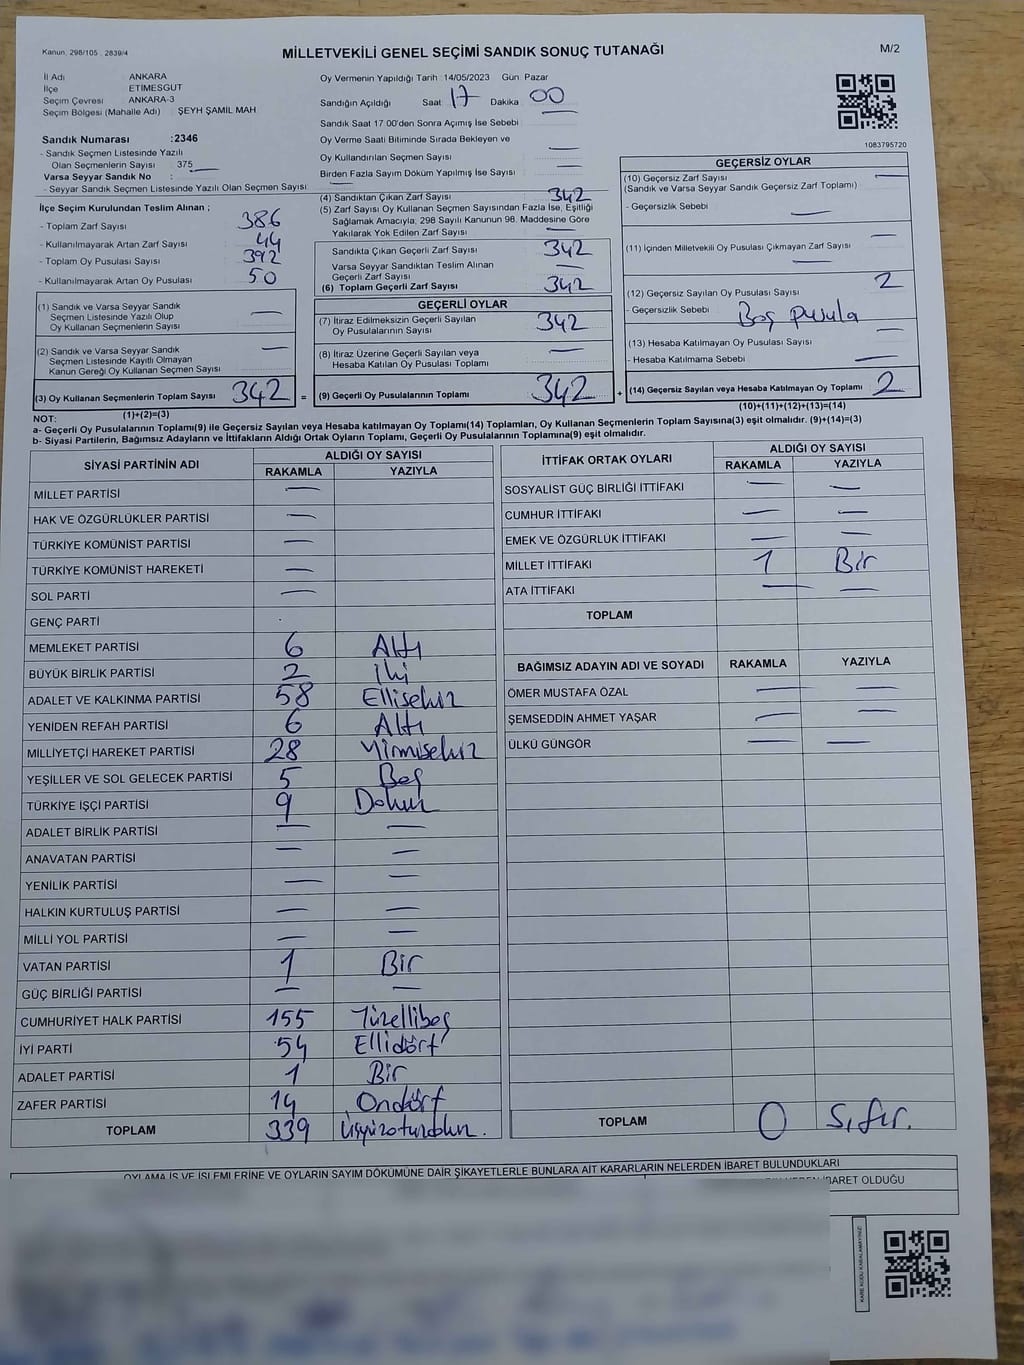 Kanun, 298/105 , 2839/4
MİLLETVEKİLİ GENEL SEÇİMİ SANDIK SONUÇ TUTANAĞI
M/2
İl Adı ANKARA
İlçe ETİMESGUT
Seçim Çevresi ANKARA-3
Seçim Bölgesi (Mahalle Adı) : ŞEYH ŞAMİL MAH
Sandık Numarası :2346
- Sandık Seçmen Listesinde Yazılı
Olan Seçmenlerin Sayısı : 375
Varsa Seyyar Sandık No : —
- Seyyar Sandık Seçmen Listesinde Yazılı Olan Seçmen Sayısı : —
İlçe Seçim Kurulundan Teslim Alınan ;
- Toplam Zarf Sayısı 386
- Kullanılmayarak Artan Zarf Sayısı 44
- Toplam Oy Pusulası Sayısı 392
- Kullanılmayarak Artan Oy Pusulası 50
(1) Sandık ve Varsa Seyyar Sandık
Seçmen Listesinde Yazılı Olup
Oy Kullanan Seçmenlerin Sayısı —
(2) Sandık ve Varsa Seyyar Sandık
Seçmen Listesinde Kayıtlı Olmayan
Kanun Gereği Oy Kullanan Seçmen Sayısı —
(3) Oy Kullanan Seçmenlerin Toplam Sayısı 342 =
(1)+(2)=(3)
Oy Vermenin Yapıldığı Tarih :14/05/2023 Gün: Pazar
Sandığın Açıldığı Saat 17 Dakika 00
Sandık Saat 17:00'den Sonra Açımış İse Sebebi —
Oy Verme Saati Bitiminde Sırada Bekleyen ve
Oy Kullandırılan Seçmen Sayısı —
Birden Fazla Sayım Döküm Yapılmış İse Sayısı —
(4) Sandıktan Çıkan Zarf Sayısı 342
(5) Zarf Sayısı Oy Kullanan Seçmen Sayısından Fazla İse, Eşitliği
Sağlamak Amacıyla, 298 Sayılı Kanunun 98. Maddesine Göre
Yakılarak Yok Edilen Zarf Sayısı —
Sandıkta Çıkan Geçerli Zarf Sayısı 342
Varsa Seyyar Sandıktan Teslim Alınan
Geçerli Zarf Sayısı —
(6) Toplam Geçerli Zarf Sayısı 342
GEÇERLİ OYLAR
(7) İtiraz Edilmeksizin Geçerli Sayılan
Oy Pusulalarının Sayısı 342
(8) İtiraz Üzerine Geçerli Sayılan veya
Hesaba Katılan Oy Pusulası Toplamı —
(9) Geçerli Oy Pusulalarının Toplamı 342 +
1083795720
GEÇERSİZ OYLAR
(10) Geçersiz Zarf Sayısı —
(Sandık ve Varsa Seyyar Sandık Geçersiz Zarf Toplamı)
- Geçersizlik Sebebi —
(11) İçinden Milletvekili Oy Pusulası Çıkmayan Zarf Sayısı —
—
(12) Geçersiz Sayılan Oy Pusulası Sayısı 2
- Geçersizlik Sebebi Boş Pusula
(13) Hesaba Katılmayan Oy Pusulası Sayısı —
- Hesaba Katılmama Sebebi —
(14) Geçersiz Sayılan veya Hesaba Katılmayan Oy Toplamı 2
(10)+(11)+(12)+(13)=(14)
NOT:
a- Geçerli Oy Pusulalarının Toplamı(9) ile Geçersiz Sayılan veya Hesaba katılmayan Oy Toplamı(14) Toplamları, Oy Kullanan Seçmenlerin Toplam Sayısına(3) eşit olmalıdır. (9)+(14)=(3)
b- Siyasi Partilerin, Bağımsız Adayların ve İttifakların Aldığı Ortak Oyların Toplamı, Geçerli Oy Pusulalarının Toplamına(9) eşit olmalıdır.
SİYASİ PARTİNİN ADI ALDIĞI OY SAYISI
RAKAMLA YAZIYLA
MİLLET PARTİSİ —
HAK VE ÖZGÜRLÜKLER PARTİSİ —
TÜRKİYE KOMÜNİST PARTİSİ —
TÜRKİYE KOMÜNİST HAREKETİ —
SOL PARTİ —
GENÇ PARTİ
MEMLEKET PARTİSİ 6 Altı
BÜYÜK BİRLİK PARTİSİ 2 İki
ADALET VE KALKINMA PARTİSİ 58 Ellisekiz
YENİDEN REFAH PARTİSİ 6 Altı
MİLLİYETÇİ HAREKET PARTİSİ 28 Yirmisekiz
YEŞİLLER VE SOL GELECEK PARTİSİ 5 Beş
TÜRKİYE İŞÇİ PARTİSİ 9 Dokuz
ADALET BİRLİK PARTİSİ — —
ANAVATAN PARTİSİ — —
YENİLİK PARTİSİ — —
HALKIN KURTULUŞ PARTİSİ — —
MİLLİ YOL PARTİSİ — —
VATAN PARTİSİ 1 Bir
GÜÇ BİRLİĞİ PARTİSİ — —
CUMHURİYET HALK PARTİSİ 155 Yüzellibeş
İYİ PARTİ 54 Ellidört
ADALET PARTİSİ 1 Bir
ZAFER PARTİSİ 14 Ondört
TOPLAM 339 Üçyüzotuzdokuz.
İTTİFAK ORTAK OYLARI ALDIĞI OY SAYISI
RAKAMLA YAZIYLA
SOSYALİST GÜÇ BİRLİĞİ İTTİFAKI — —
CUMHUR İTTİFAKI — —
EMEK VE ÖZGÜRLÜK İTTİFAKI — —
MİLLET İTTİFAKI 1 Bir
ATA İTTİFAKI — —
TOPLAM
BAĞIMSIZ ADAYIN ADI VE SOYADI RAKAMLA YAZIYLA
ÖMER MUSTAFA ÖZAL — —
ŞEMSEDDİN AHMET YAŞAR — —
ÜLKÜ GÜNGÖR — —
TOPLAM 0 Sıfır.
OYLAMA İŞ VE İŞLEMLERİNE VE OYLARIN SAYIM DÖKÜMÜNE DAİR ŞİKAYETLERLE BUNLARA AİT KARARLARIN NELERDEN İBARET BULUNDUKLARI
İBARET OLDUĞU
KARE KODU KARALAMAYINIZ!